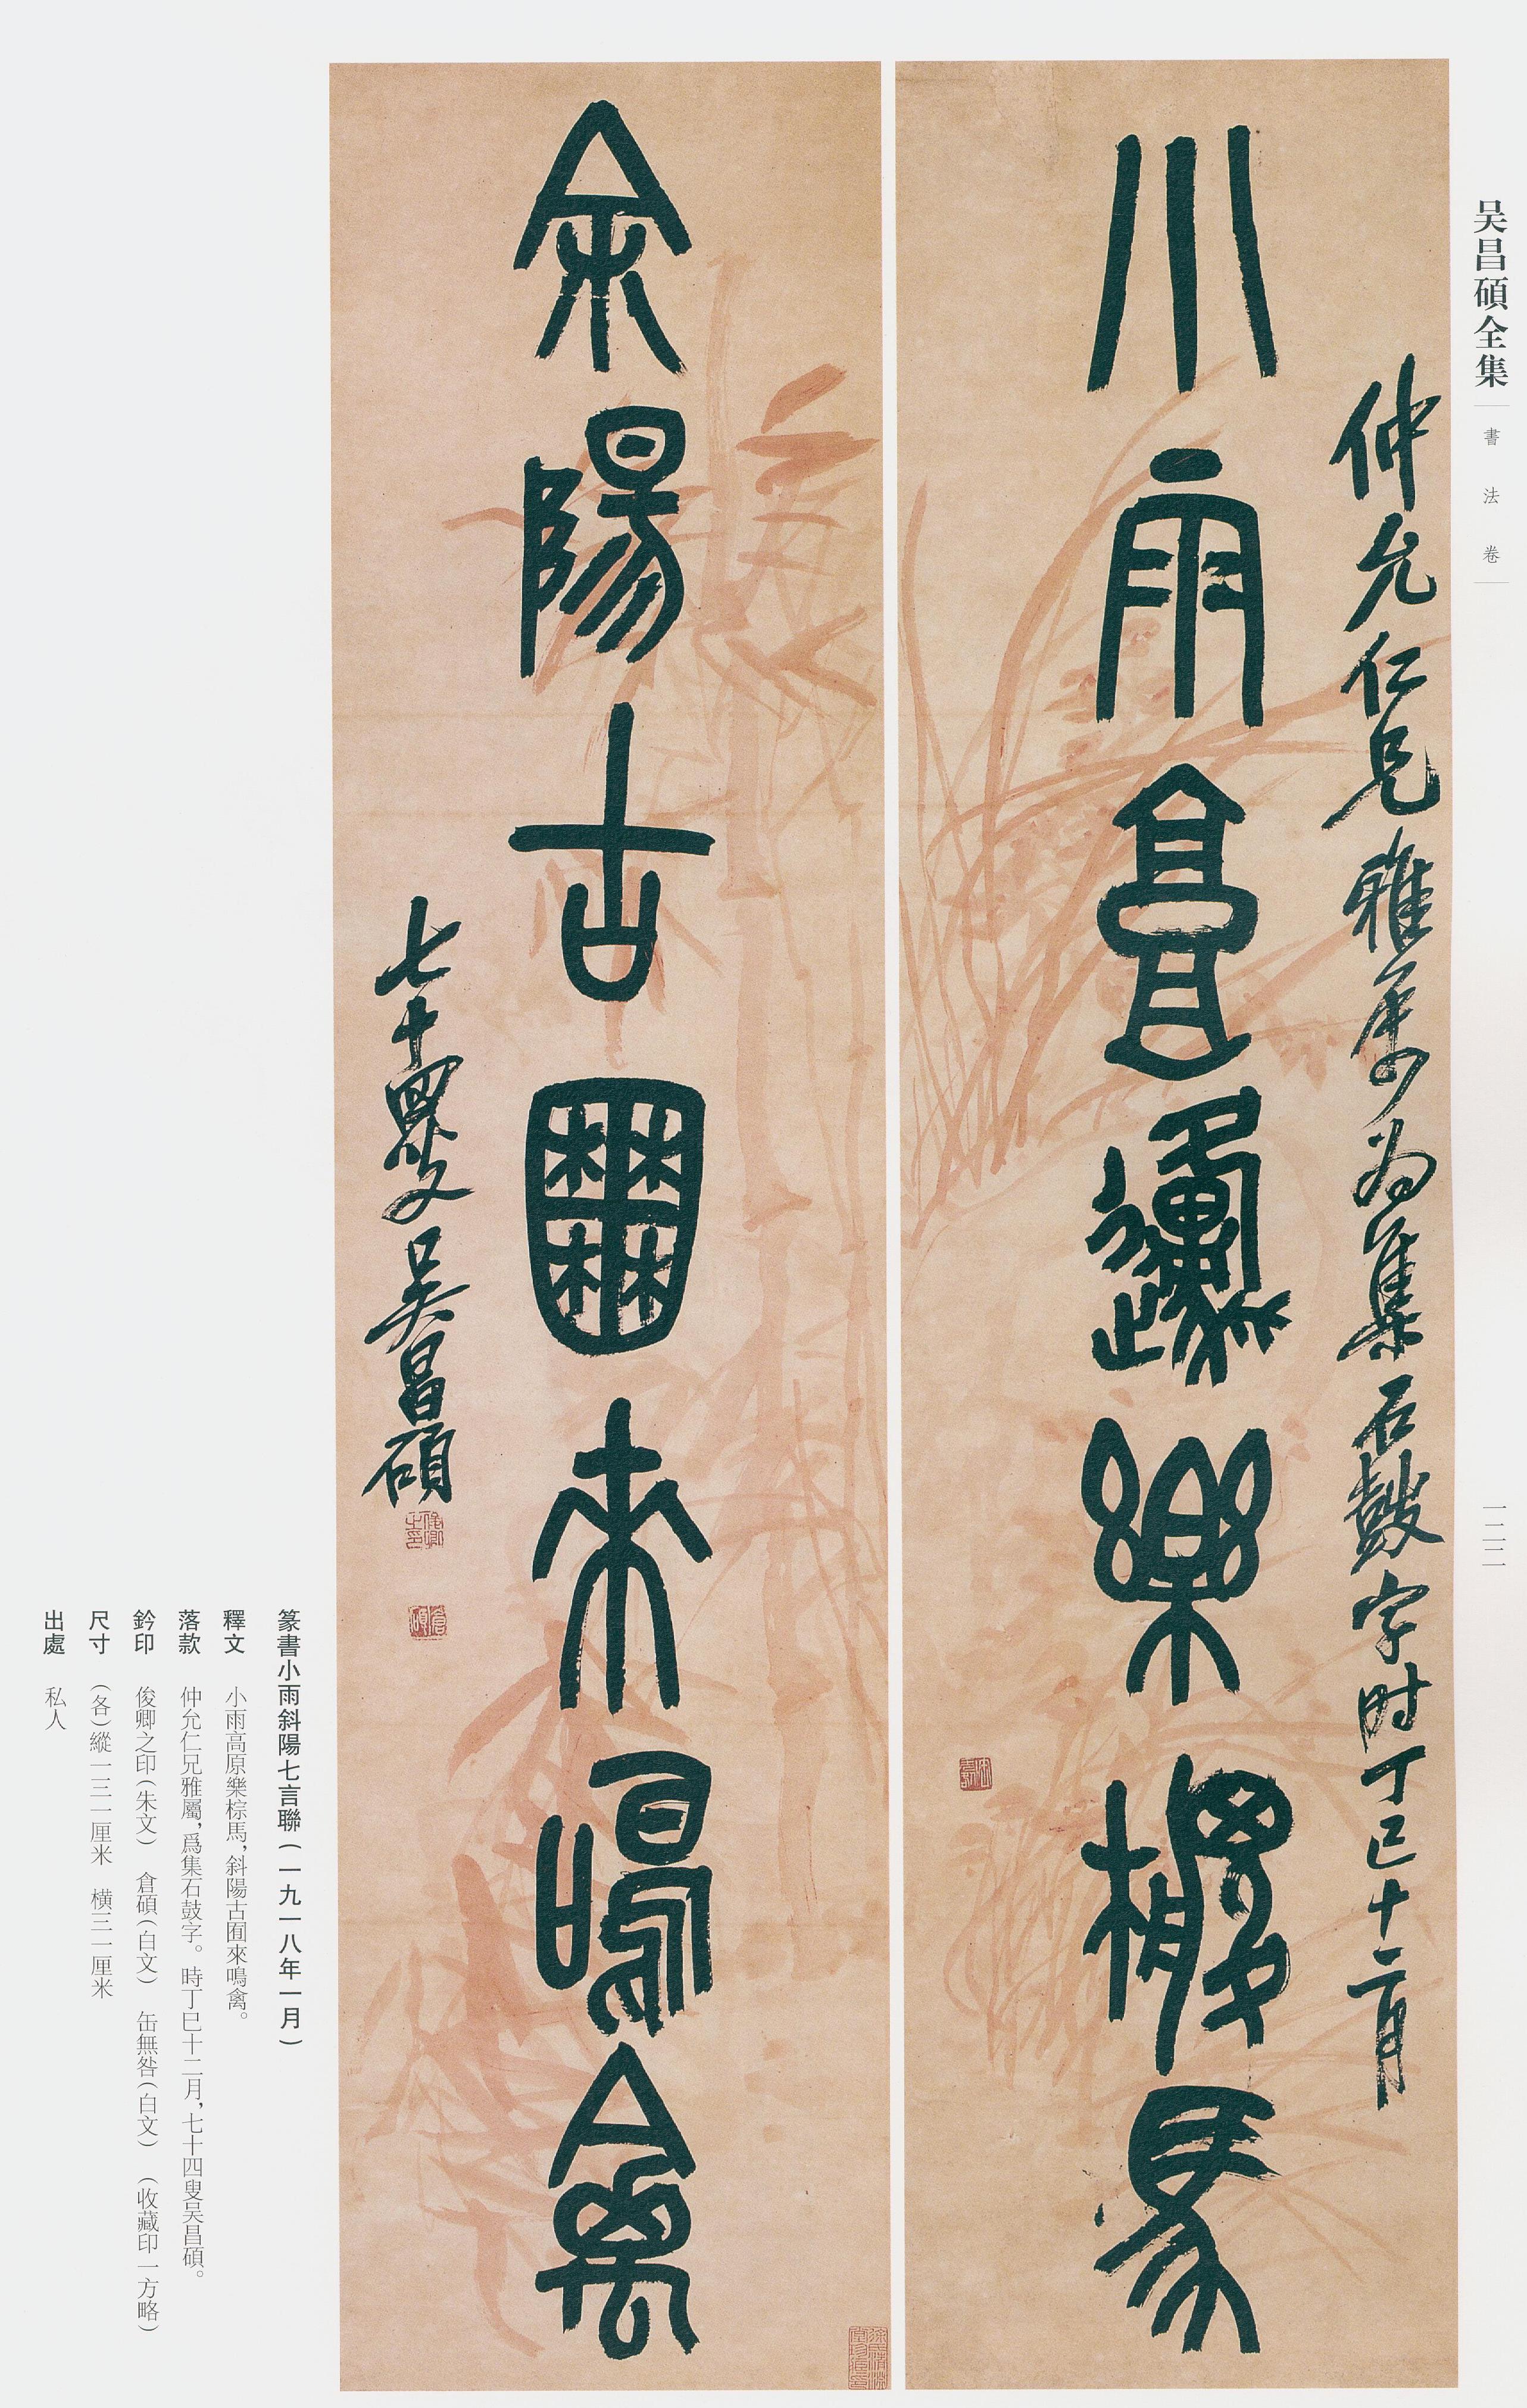 吴昌碩全集
書法卷
一二二
仲允仁兄雅屬為集石鼓字时丁巳十二月
小雨高邍樂椶馬
余陽古囿來鳴禽
七十四叟吴昌碩
俊卿之印
倉碩
篆書小雨斜陽七言聯(一九一八年一月)
釋文 小雨高原樂棕馬,斜陽古囿來鳴禽。
落款 仲允仁兄雅屬,爲集石鼓字。時丁巳十二月,七十四叟吴昌碩。
鈐印 俊卿之印(朱文) 倉碩(白文) 缶無咎(白文) (收藏印一方略)
尺寸 (各)縱一三一厘米 横三一厘米
出處 私人